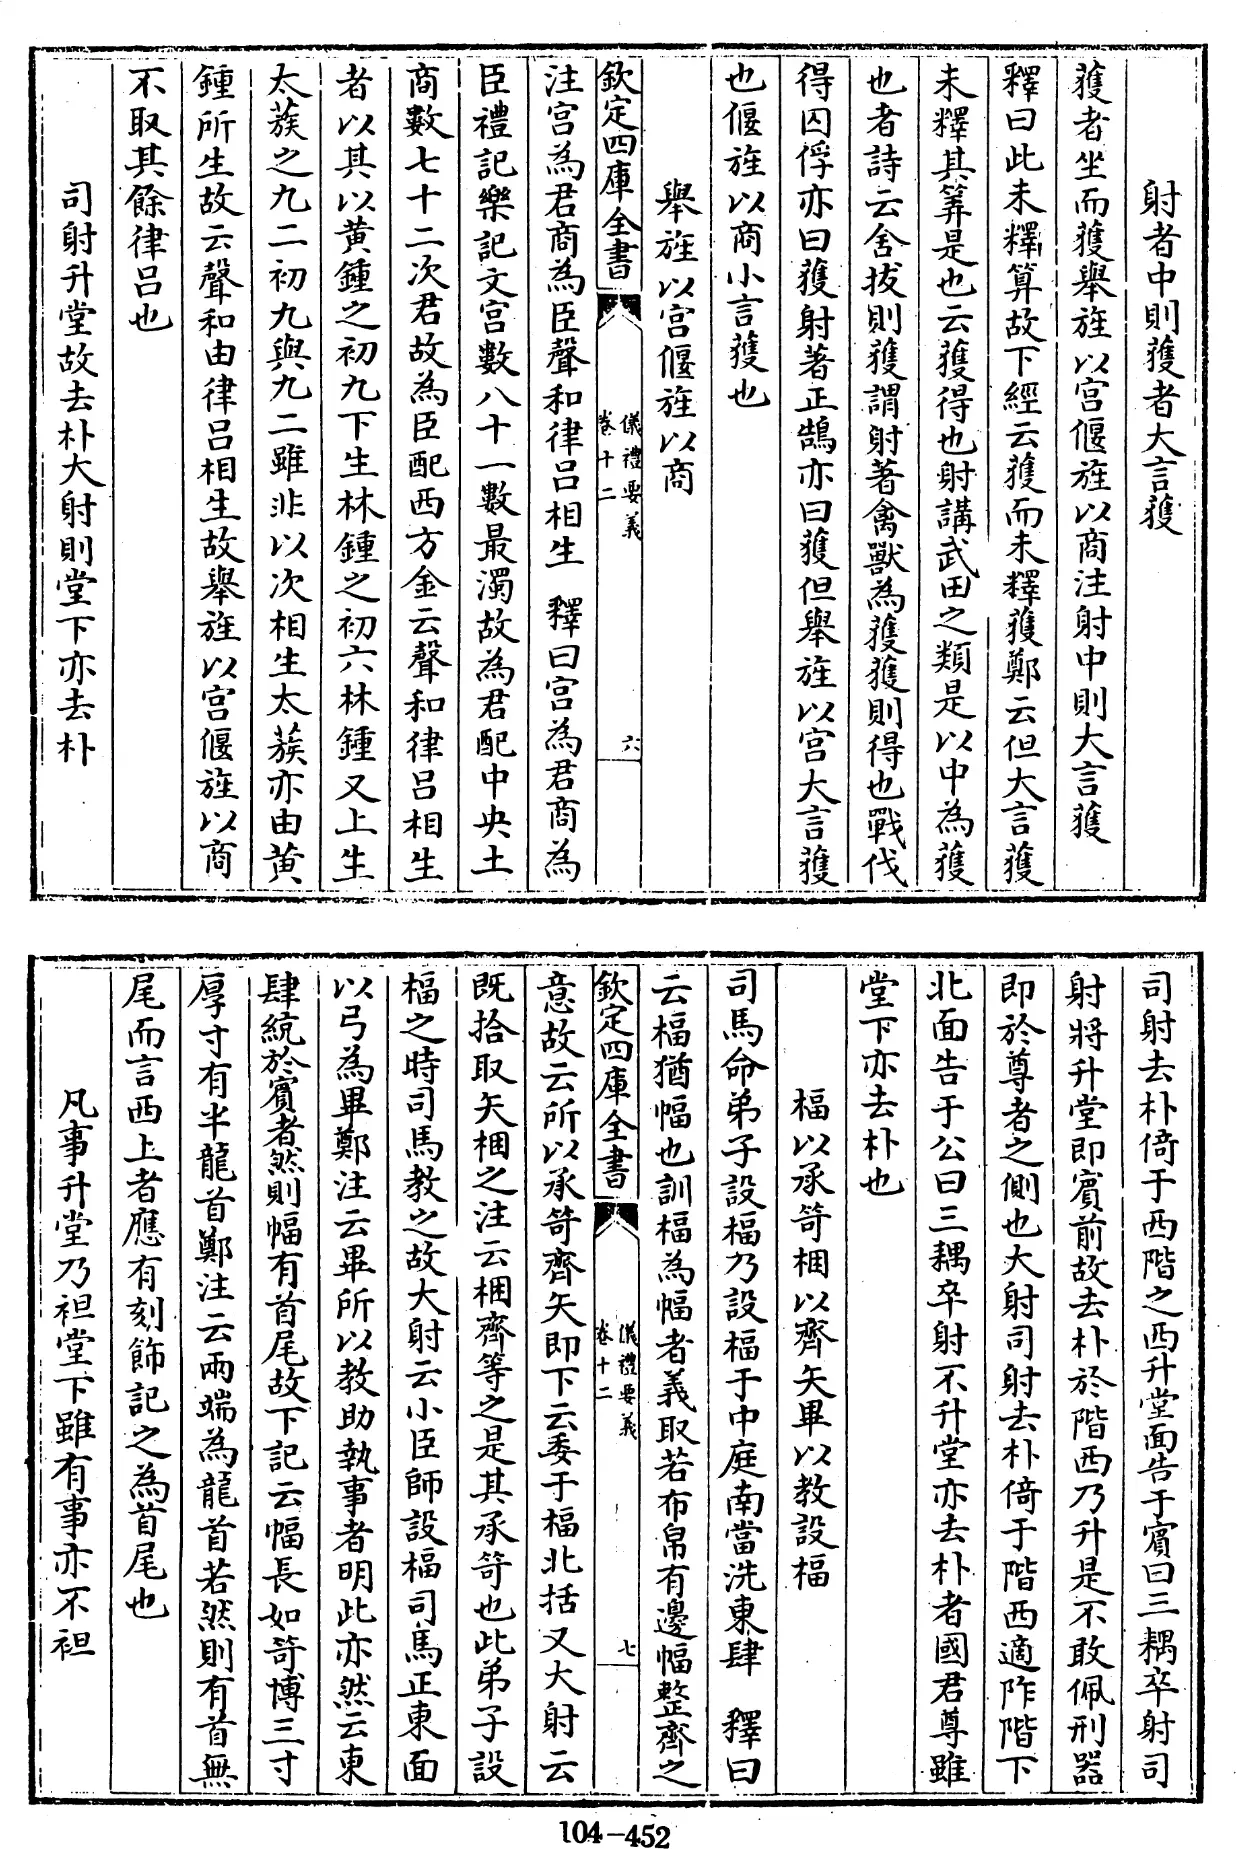 射者中則獲者大言獲
獲者坐而獲舉旌以宫偃旌以商注射中則大言獲
釋曰此未釋算故下經云獲而未釋獲鄭云但大言獲
未釋其筭是也云獲得也射講武田之類是以中為獲
也者詩云舍拔則獲謂射著禽獸為獲獲則得也戰伐
得囚俘亦曰獲射著正鵠亦曰獲但舉旌以宫大言獲
也偃旌以商小言獲也
舉旌以宫偃旌以商
欽定四庫全書
儀禮要義
卷十二
六
注宫為君商為臣聲和律呂相生 釋曰宫為君商為
臣禮記樂記文宫數八十一數最濁故為君配中央土
商數七十二次君故為臣配西方金云聲和律呂相生
者以其以黄鍾之初九下生林鍾之初六林鍾又上生
太蔟之九二初九與九二雖非以次相生太蔟亦由黄
鍾所生故云聲和由律呂相生故舉旌以宫偃旌以商
不取其餘律呂也
司射升堂故去朴大射則堂下亦去朴
司射去朴倚于西階之西升堂面告于賓曰三耦卒射司
射將升堂即賓前故去朴於階西乃升是不敢佩刑器
即於尊者之側也大射司射去朴倚于階西適阼階下
北面告于公曰三耦卒射不升堂亦去朴者國君尊雖
堂下亦去朴也
楅以承笴梱以齊矢畢以教設楅
司馬命弟子設楅乃設楅于中庭南當洗東肆 釋曰
云楅猶幅也訓楅為幅者義取若布帛有邊幅整齊之
欽定四庫全書
儀禮要義
卷十二
七
意故云所以承笴齊矢即下云委于楅北括又大射云
既拾取矢梱之注云梱齊等之是其承笴也此弟子設
楅之時司馬教之故大射云小臣師設楅司馬正東面
以弓為畢鄭注云畢所以教助執事者明此亦然云東
肆統於賓者然則幅有首尾故下記云幅長如笴博三寸
厚寸有半龍首鄭注云兩端為龍首若然則有首無
尾而言西上者應有刻飾記之為首尾也
凡事升堂乃袒堂下雖有事亦不袒
104-452